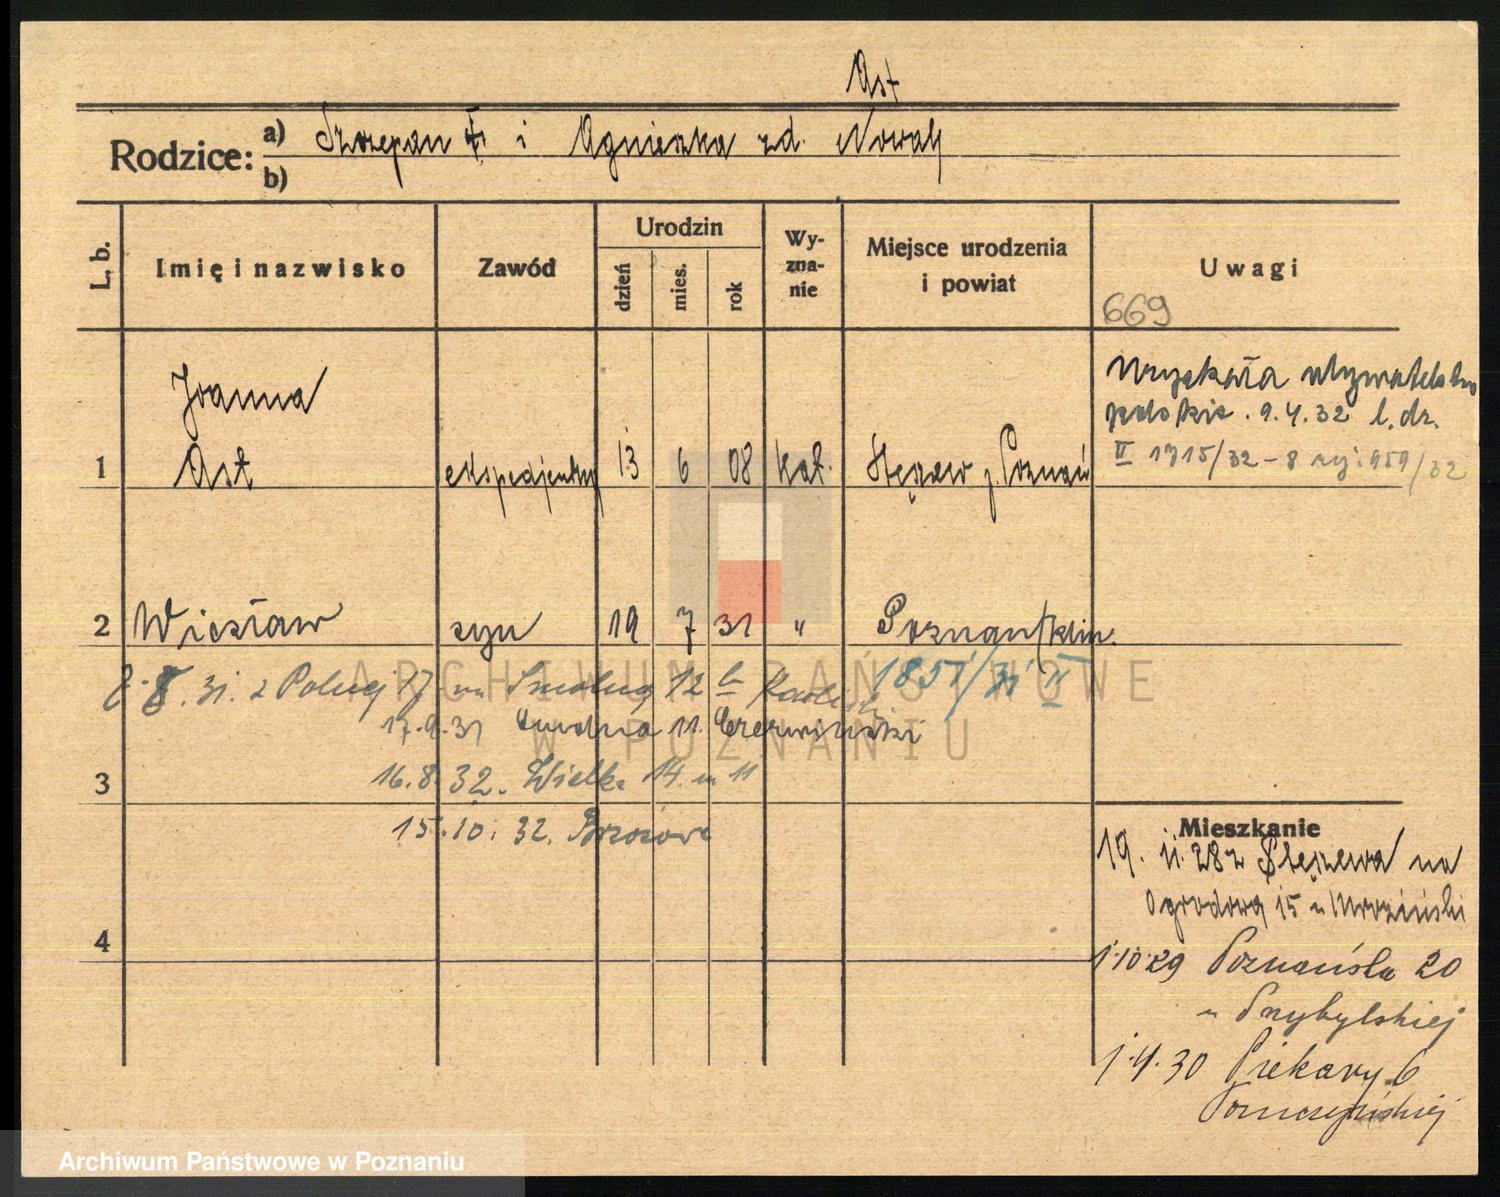 Ast
Rodzice: a) Szczepan i Agnieszka zd. Nowak
b)
L. b. Imię i nazwisko Zawód Urodzin dzień mies. rok Wy-zna-nie Miejsce urodzenia i powiat Uwagi
669
Joanna
1 Ast ekspedjentka 13 6 08 kat. Stęszew p. Poznań
polskie. 9.4.32 l. dz.
II 1715/32 - 8 959/32
2 Wiesław syn 19 7 31 " Poznań/klin.
8.8.31. z 17 m 12
1851/31 II
17.9.31 11. Czerwiński
3 16.8.32. Wielka 14 m 11
15.10.32.
Mieszkanie
19. 11. 28 z Stęszewa na
Ogrodową 15 u Mroziński
4
1.10.29 Poznańska 20
u Przybylskiej
1.4.30 Piekary 6
ARCHIWUM PAŃSTWOWE
W POZNANIU
Archiwum Państwowe w Poznaniu